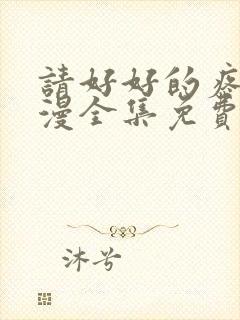 請好好的疼
漫全集免費
沐兮